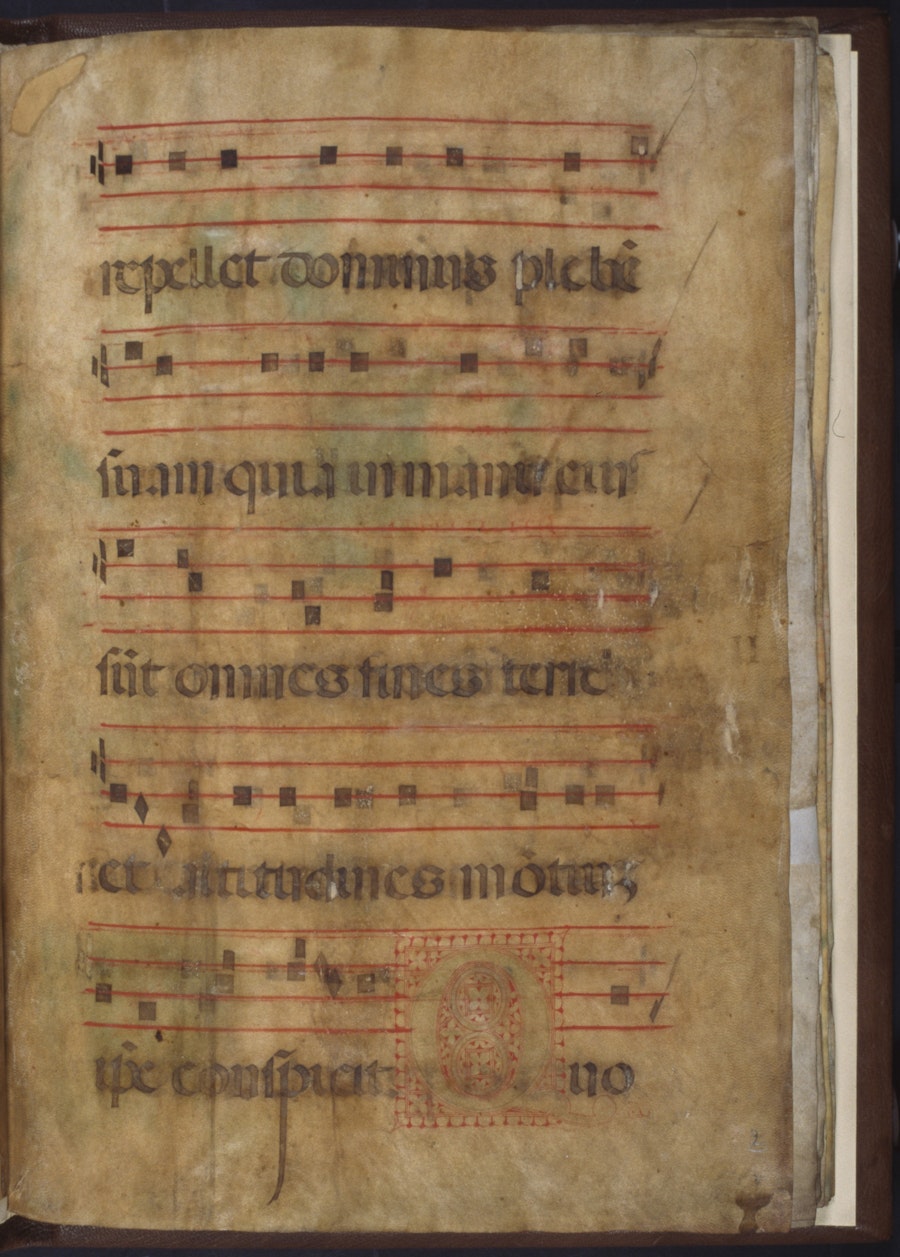 repellet dominus plebē
suam quia in manu eius
sūt omnes fines terre
et altitudines mōtiuꝫ
ip̄e conspicit Quo